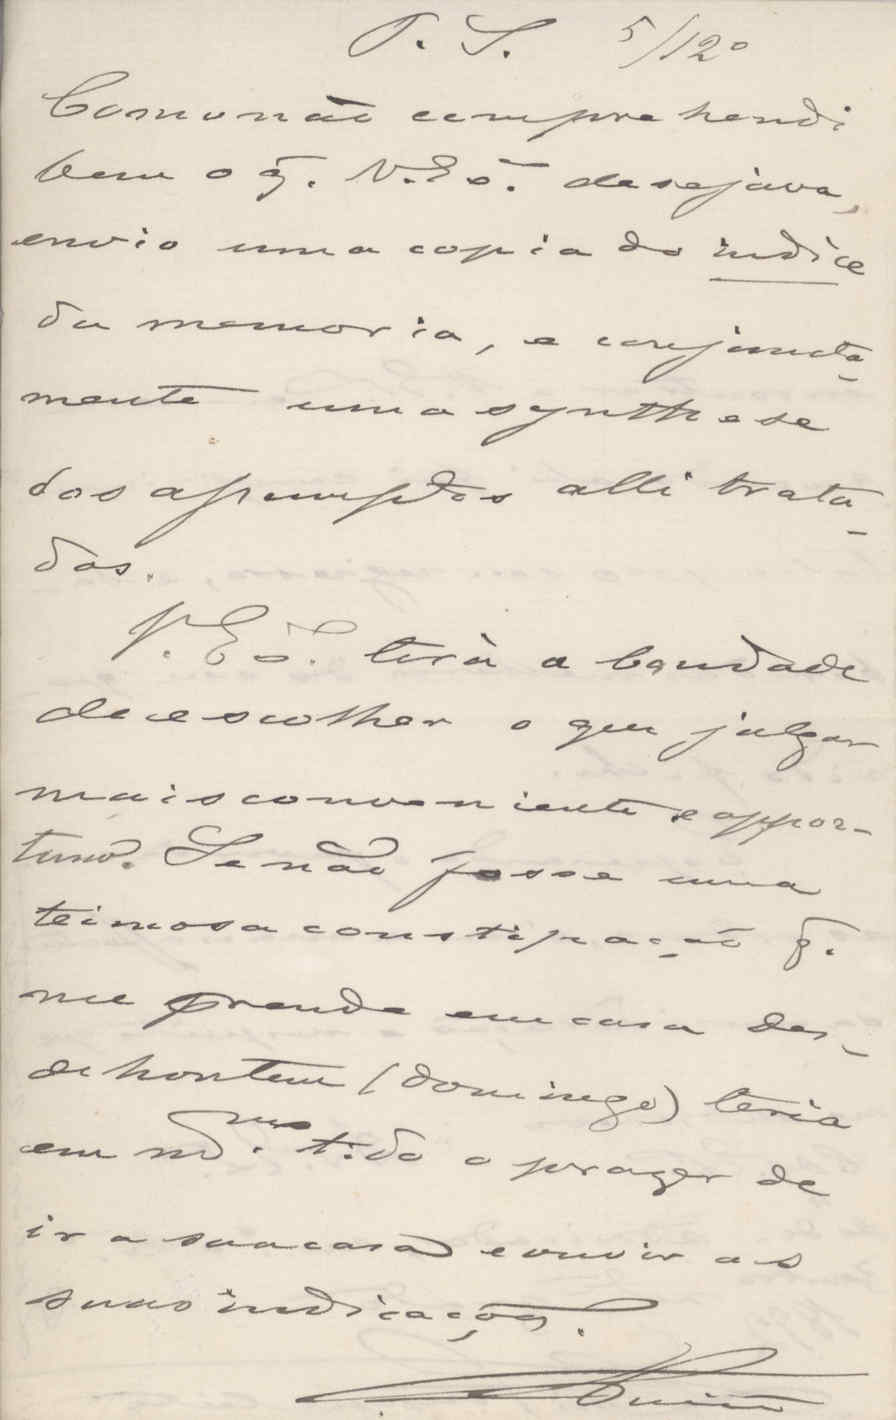 P. S. 5/12º
Como não comprehendi
bem o q. V. Exª. desejava,
envio uma copia do indice
da memoria, e conjuncta-
mente uma synthese
dos assumptos alli trata-
dos.
V. Exª. terá a bondade
de escolher o que julgar
mais conveniente e oppor-
tuno. Se não fosse uma
teimosa constipação q.
me prende em casa des-
de hontem (domingo) teria
em tido o prazer de
ir a sua casa e ouvir as
suas indicações.